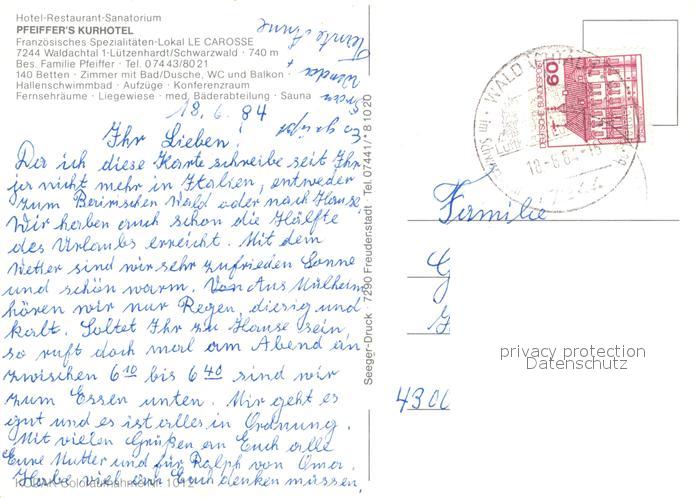 Hotel-Restaurant-Sanatorium
PFEIFFER'S KURHOTEL
Französisches Spezialitäten-Lokal LE CAROSSE
7244 Waldachtal 1-Lützenhardt/Schwarzwald · 740 m
Bes. Familie Pfeiffer · Tel. 07443/8021
140 Betten · Zimmer mit Bad/Dusche, WC und Balkon ·
Hallenschwimmbad · Aufzüge · Konferenzraum
Fernsehräume · Liegewiese · med. Bäderabteilung · Sauna
18.6.84
Ihr Lieben!
Da ich diese Karte schreibe seit Ihr
ja nicht mehr in Italien, entweder
zum Bairischen Wald oder nach Hause.
Wir haben auch schon die Hälfte
des Urlaubs erreicht. Mit dem
Wetter sind wir sehr zufrieden Sonne
und schön warm. Von Aus Mülheim
hören wir nur Regen, diesig und
kalt. Soltet Ihr zu Hause sein,
so ruft doch mal am Abend an
zwischen 6 10 bis 6 40 sind wir
zum Essen unten. Mir geht es
gut und es ist alles in Ordnung.
Mit vielen Grüßen an Euch alle
Eure Mutter und für Ralph von Oma.
Habe viel an Euch denken müssen,
KODAK
Seeger-Druck · 7290 Freudenstadt · Tel. 07441/ * 81020
DEUTSCHE BUNDESPOST
60
WALD
18-6.84-15
Familie
G
4300
privacy protection
Datenschutz